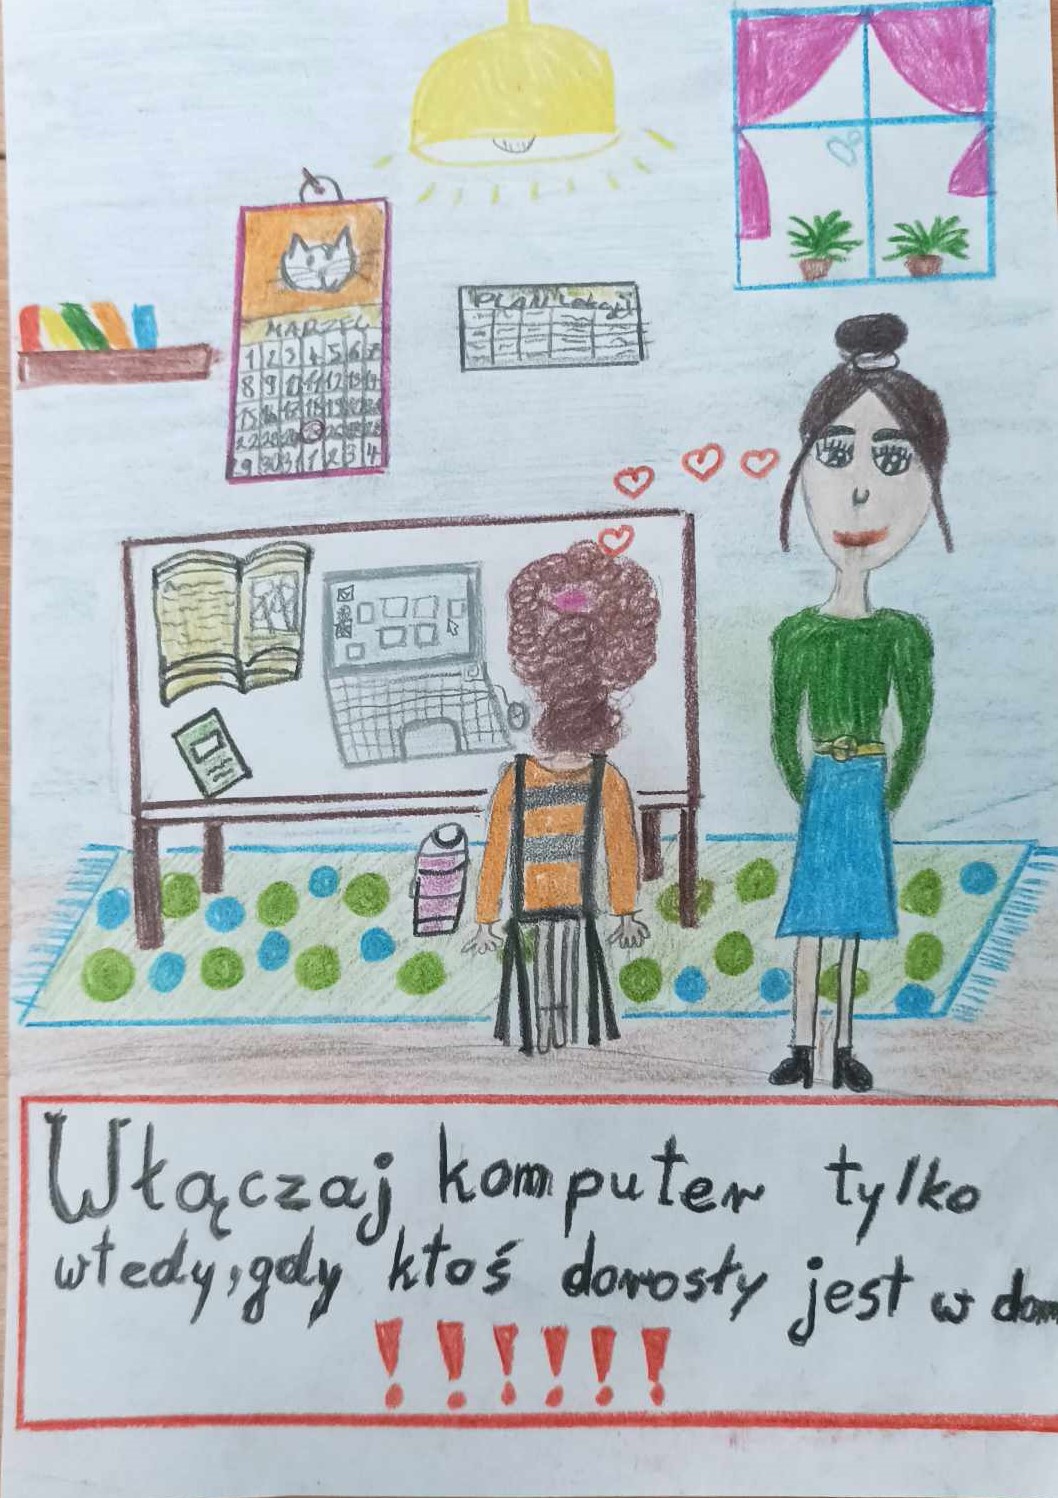 PLAN Lekcji
MARZEC
1 2 3 4 5 6 7
8 9 10 11 12 13 14
15 16 17 18 19
22
29 30 31 1 2 3 4
Włączaj komputer tylko
wtedy, gdy ktoś dorosły jest w dom
!!!!!!